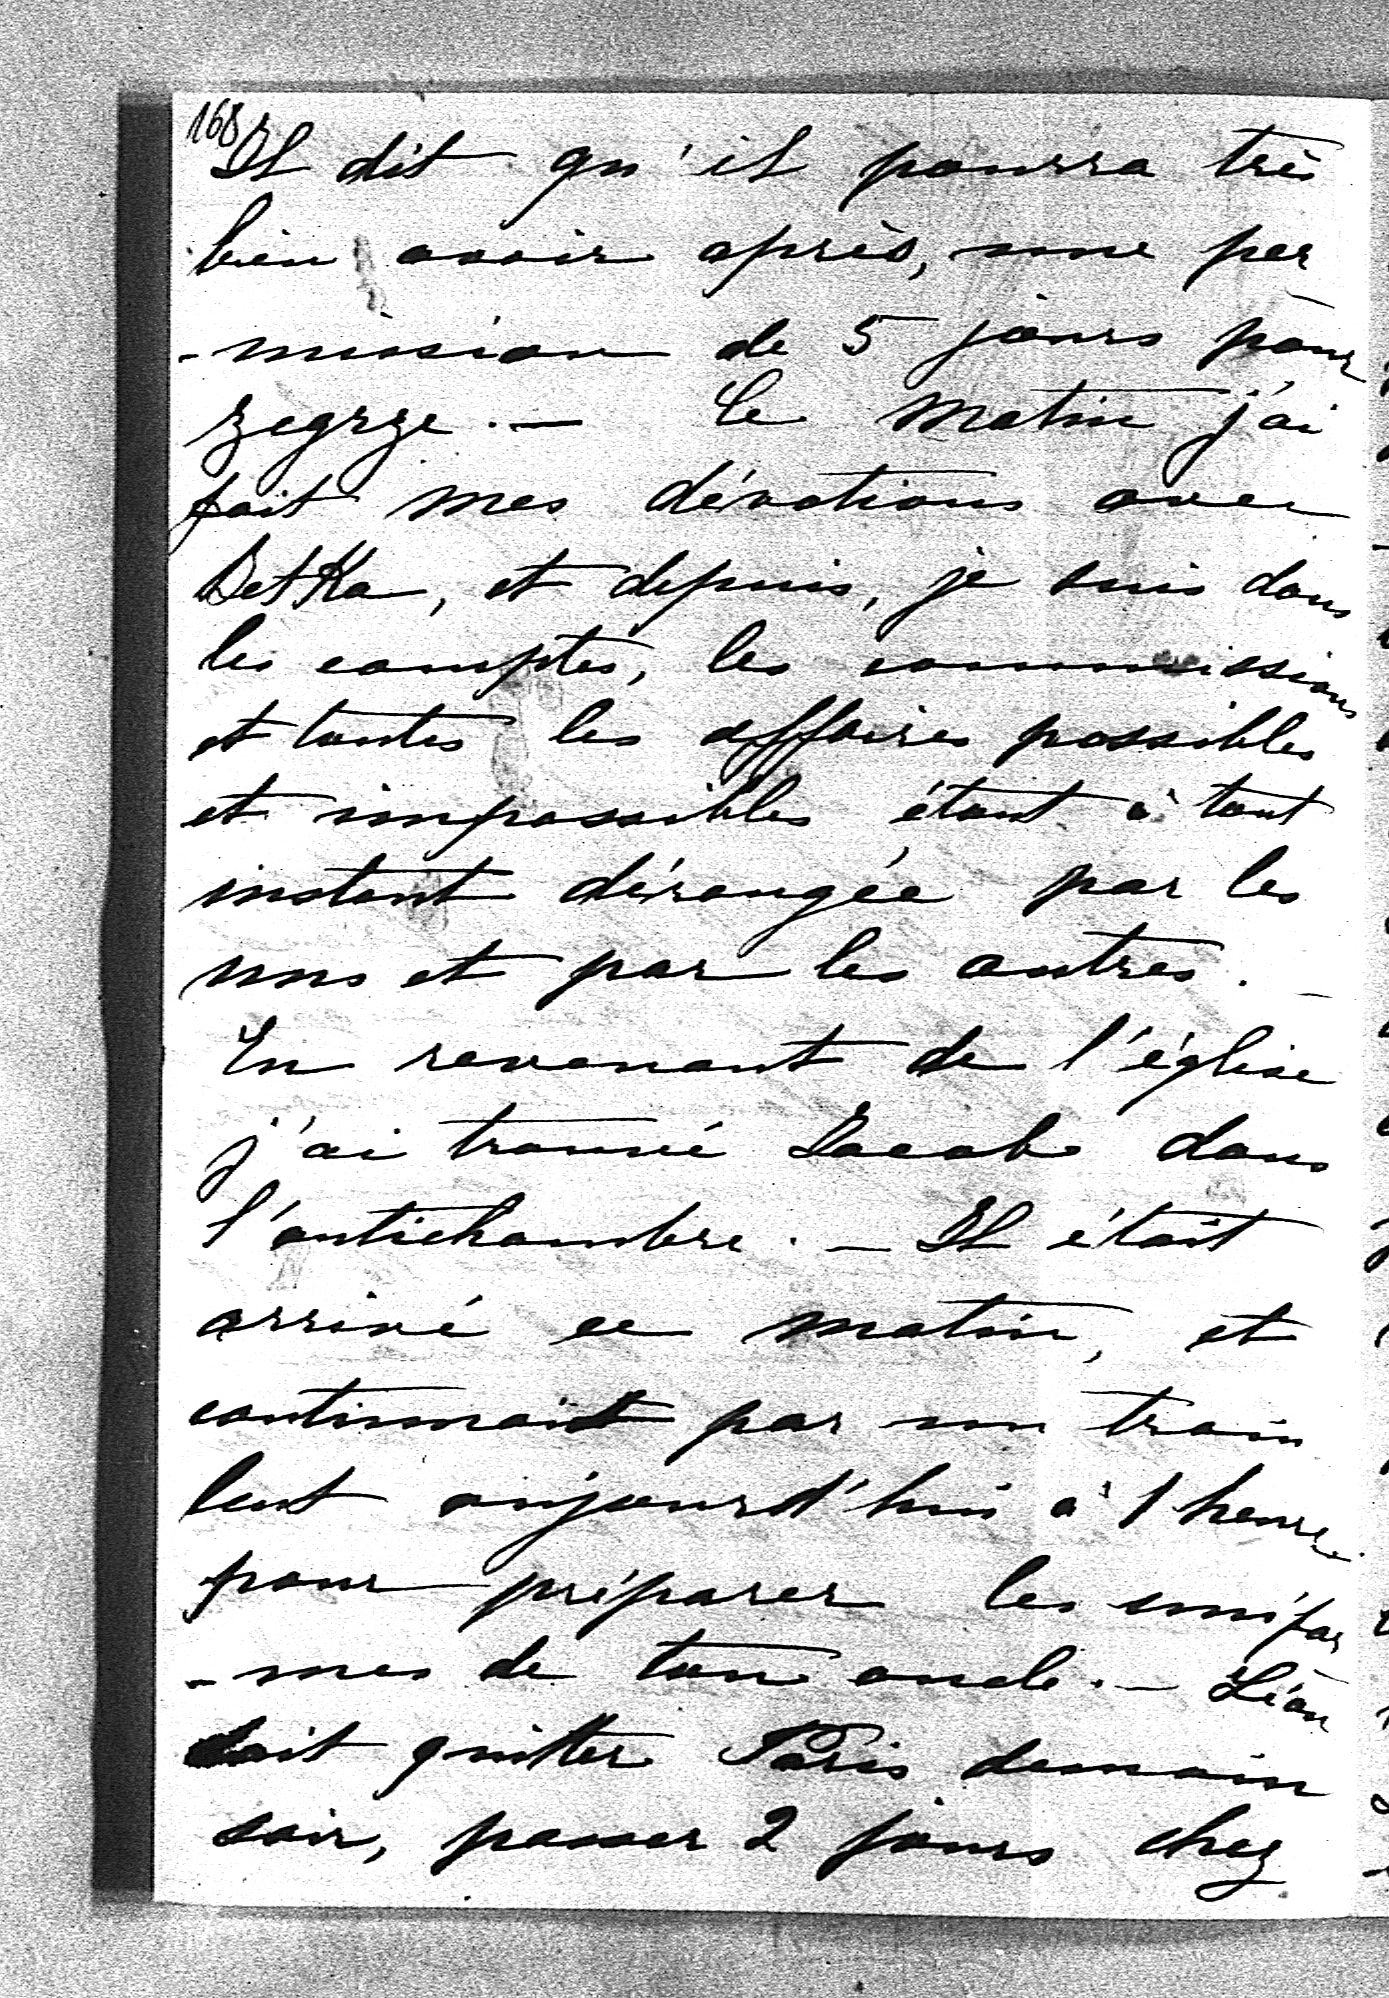 168
Il dit qu'il pourra très
bien avoir après, une per
-mission de 5 jours pour
Zegrze. — Ce matin j'ai
fait mes dévotions avec
Betka, et depuis, je suis dans
les comptes, les commissions
et toutes les affaires possibles
et impossibles étant à tout
instant dérangée par les
uns et par les autres. —
En revenant de l'église
j'ai trouvé Jacob dans
l'antichambre. — Il était
arrivé ce matin, et
continuait par un train
lent aujourd'hui à 1 heure
pour préparer les unifor
-mes de ton oncle. — Léon
doit quitter Paris demain
soir, passer 2 jours chez